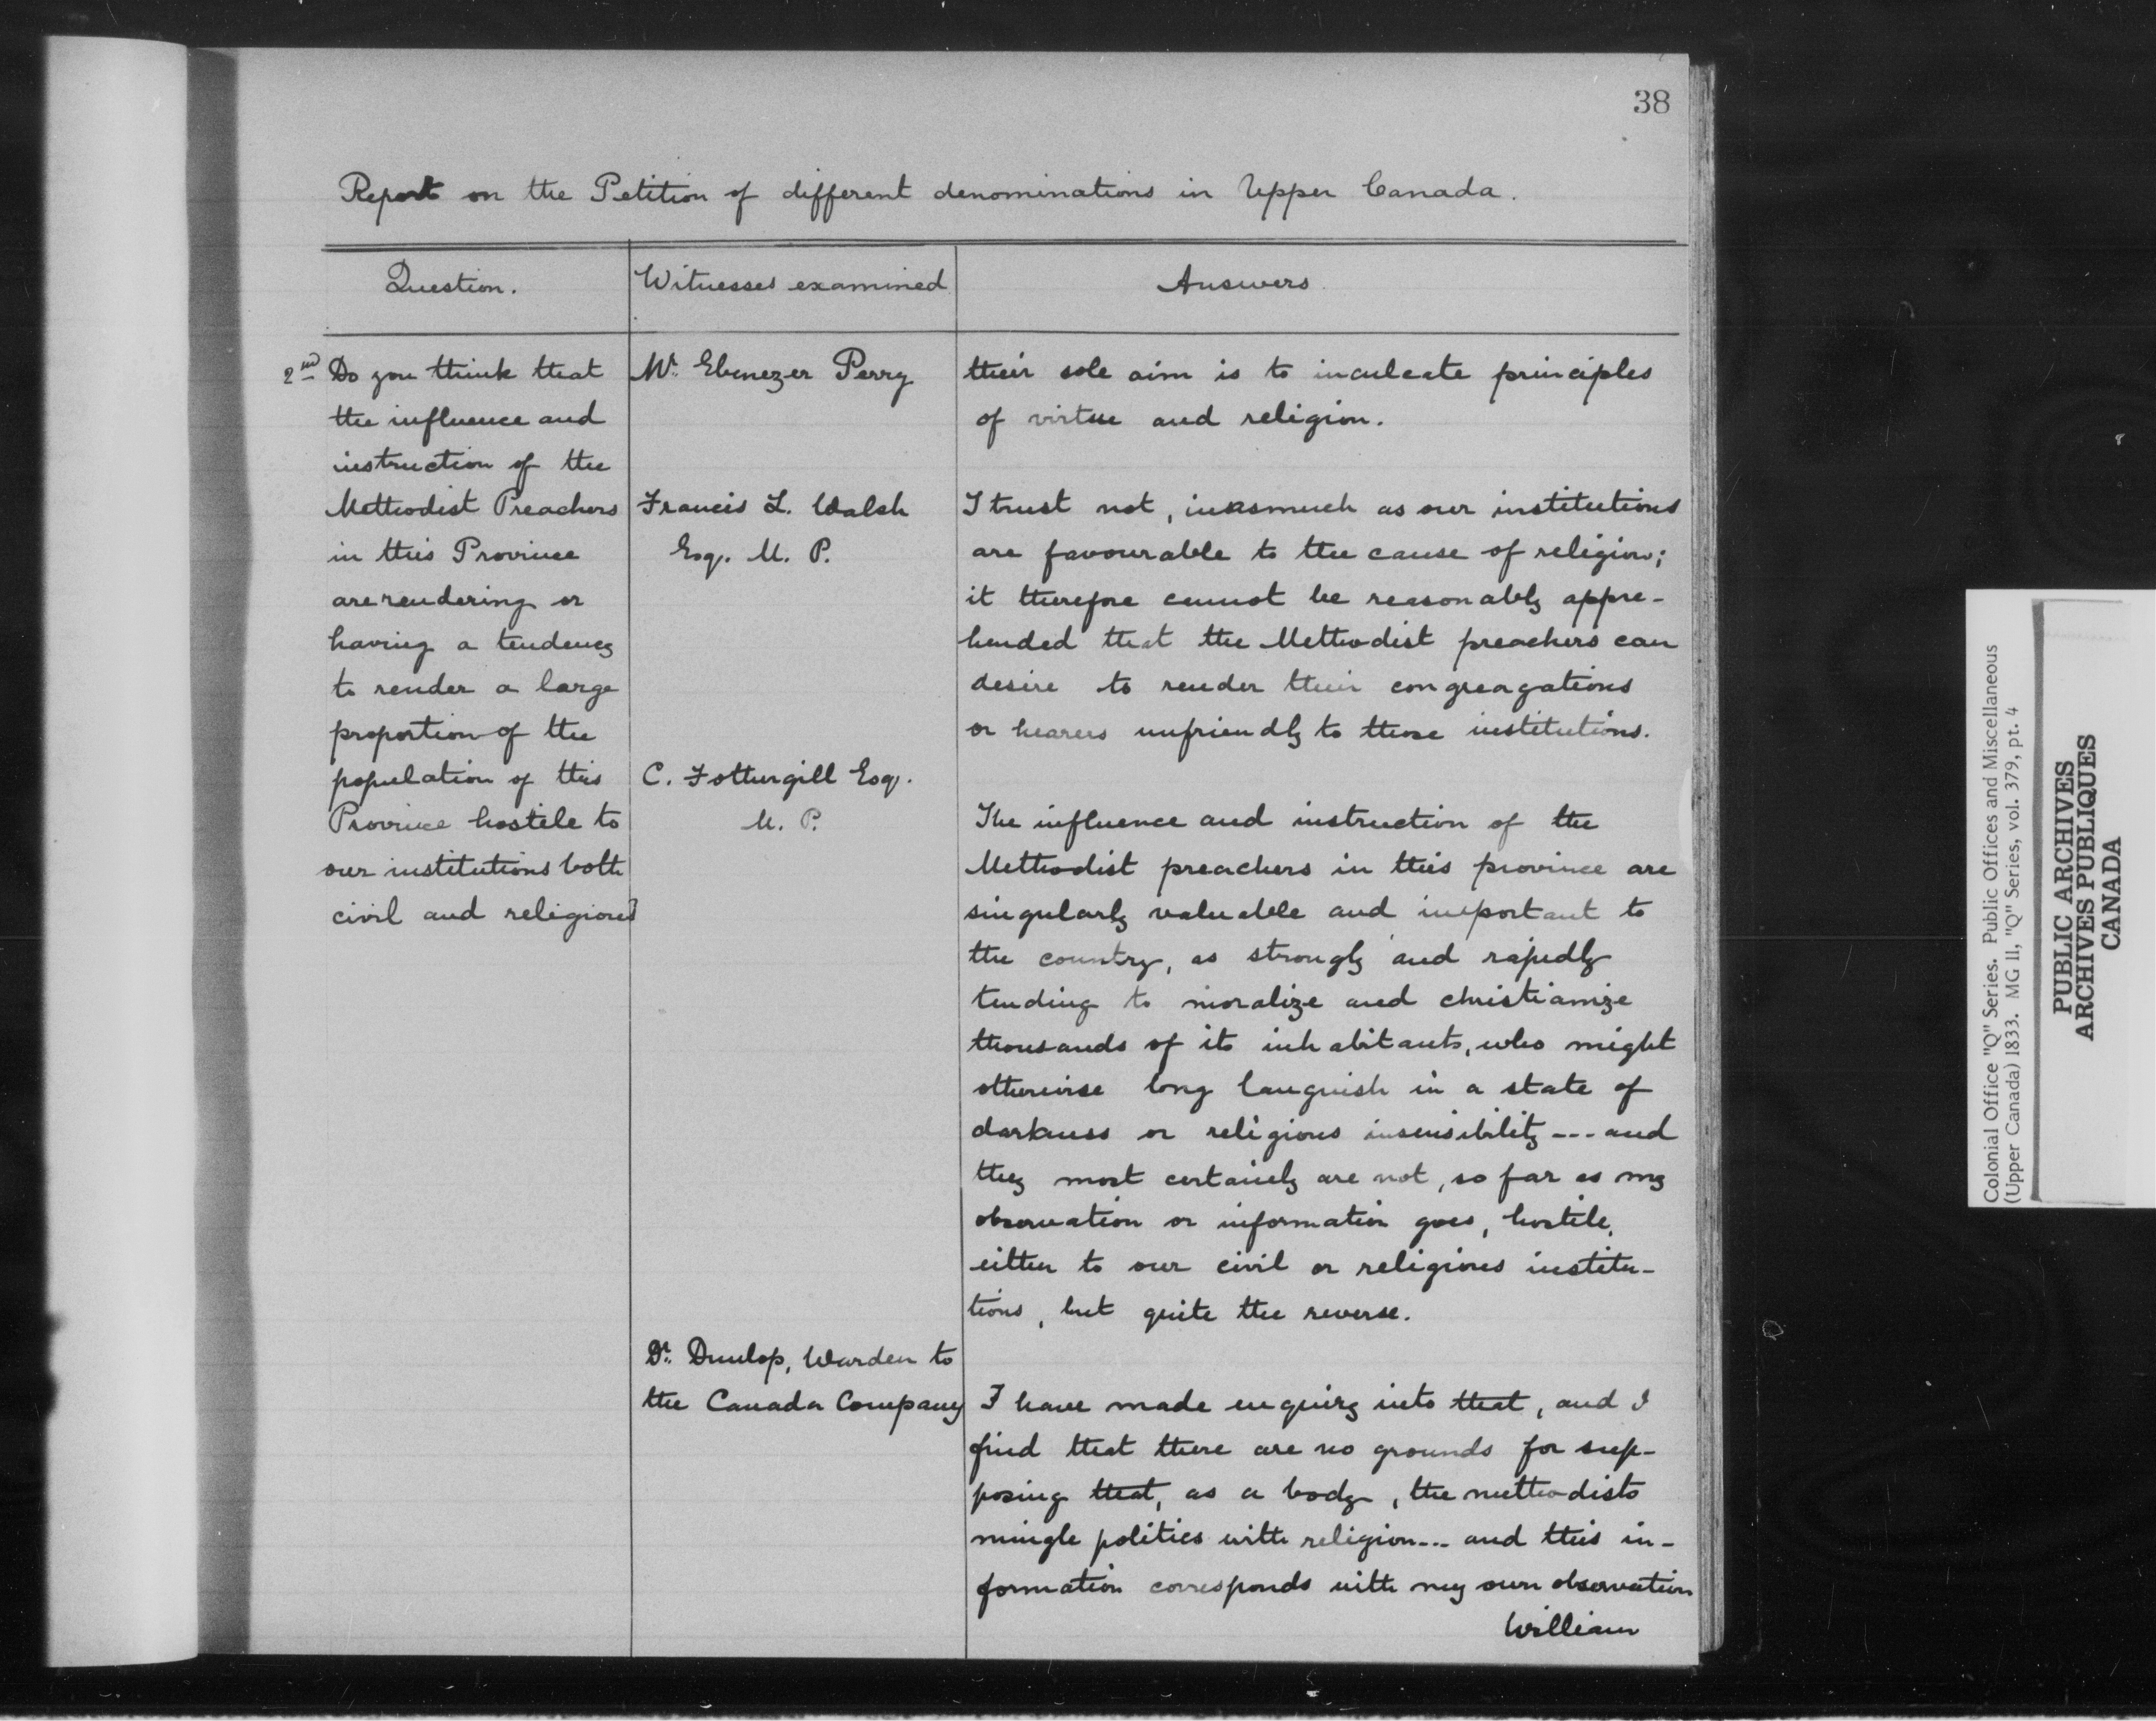 38
Report on the Petition of different denominations in Upper Canada.
Question.
Witnesses examined
Answers
2nd Do you think that
the influence and
instruction of the
Methodist Preachers
in this Province
are rendering or
having a tendency
to render a large
proportion of the
population of this
Province hostile to
our institutions both
civil and religious?
Mr. Ebenezer Perry
their sole aim is to inculcate principles
of virtue and religion.
Francis L. Walsh
Esq. M. P.
I trust not, inasmuch as our institutions
are favourable to the cause of religion;
it therefore cannot be reasonably appre-
hended that the Methodist preachers can
desire to render their congreagations
or hearers unfriendly to those institutions.
C. Fothergill Esq.
M. P.
The influence and instruction of the
Methodist preachers in this province are
singularly valuable and important to
the country, as strongly and rapidly
tending to moralize and christianize
thousands of its inhabitants, who might
otherwise long languish in a state of
darkness or religious insensibility --- and
they most certainly are not, so far as my
observation or information goes, hostile,
either to our civil or religious institu-
tions, but quite the reverse.
Dr. Dunlop, Warden to
the Canada Company
I have made enquiry into that, and I
find that there are no grounds for sup-
posing that, as a body, the methodists
mingle politics with religion --- and this in-
formation corresponds with my own observation
William
Colonial Office "Q" Series. Public Offices and Miscellaneous
(Upper Canada) 1833. MG 11, "Q" Series, vol. 379, pt. 4
PUBLIC ARCHIVES
ARCHIVES PUBLIQUES
CANADA